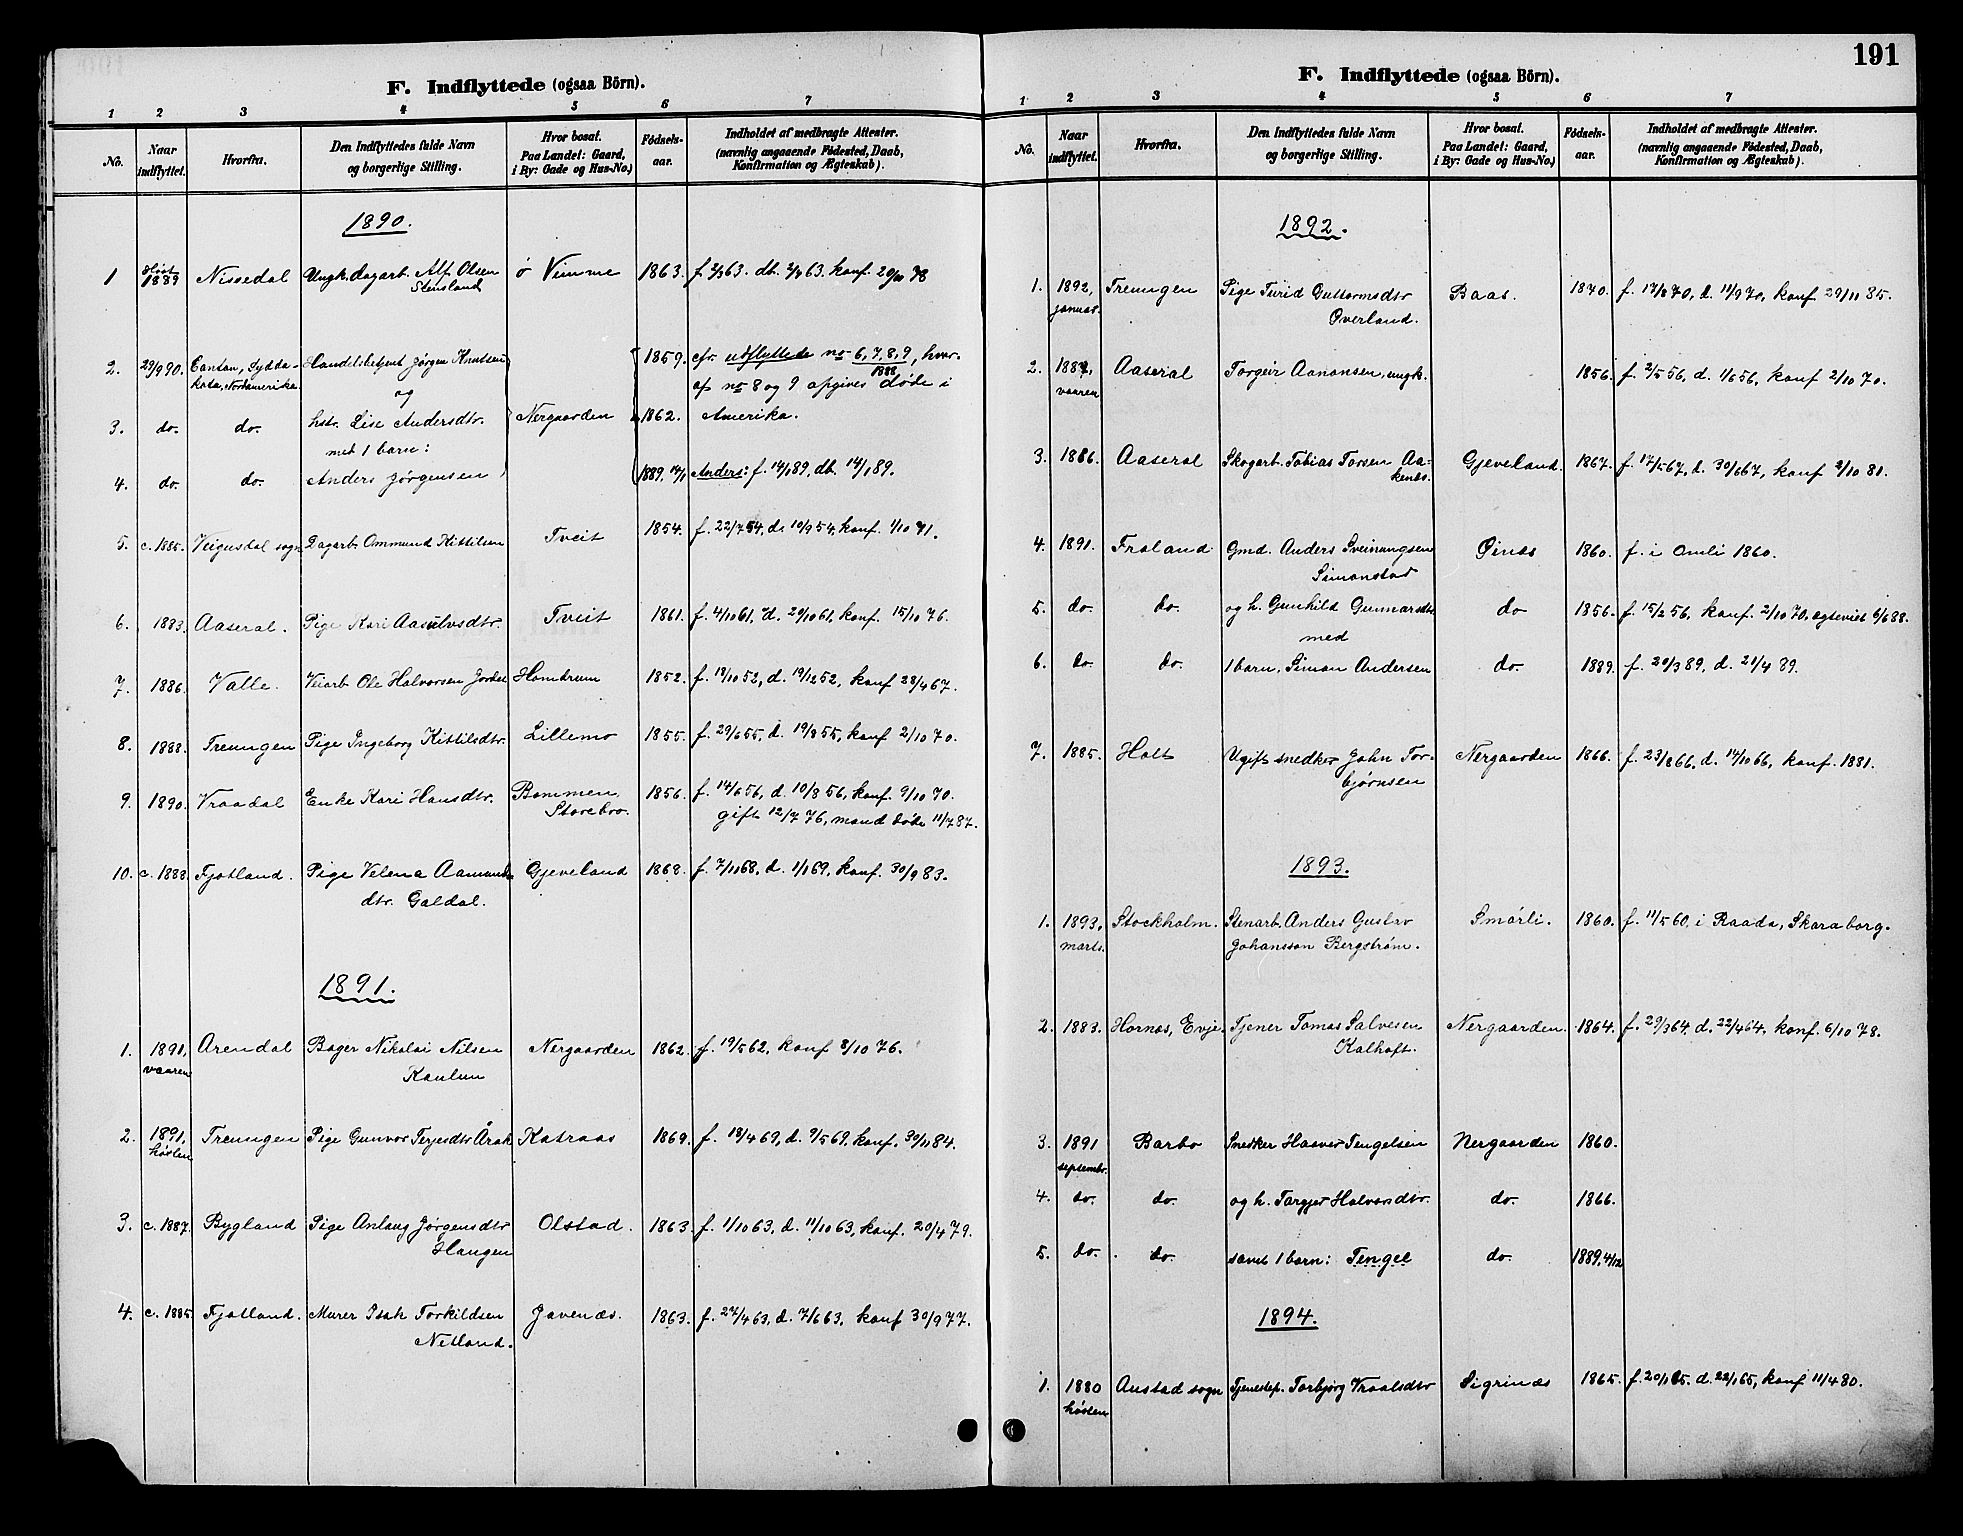 F. Indflyttede (ogsaa Börn).
1 2 3 4 5 6 7
No. Naar indflyttet. Hvorfra. Den Indflyttedes fulde Navn og borgerlige Stilling. Hvor bosat. Paa Landet: Gaard, i By: Gade og Hus-No.) Fødsels-aar. Indholdet af medbragte Attester. (navnlig angaaende Fødested, Daab, Konfirmation og Ægteskab).
1890.
1 Høst 1889 Nissedal Ungk. dagarb. Alf Olsen Stensland ø Vimme 1863. f 2/3 63. db. 63. konf. 78
2. 29/9 90. Canton, Sydda-kota, Nordamerika Handelsbetjent Jørgen Knutsen 1859. cfr. udflyttede no 6, 7, 8, 9, hvor-
og 1888 af no 8 og 9 opgives døde i
3. do. do. hst. Lise Andersdtr. Nergaarden 1862. Amerika.
met 1 barn:
4. do. do. Anders Jørgensen 1889, 14/1 Anders: f. 14/1 89. db. 14/1 89.
5. c. 1885. Veigusdal sogn Dagarb. Ommund Kittilsen Tveit 1854. f. 22/7 54, d. 10/9 54, konf. 1/10 71.
6. 1883. Aaseral. Pige Kari Aasulvsdtr. Tveit 1861. f. 4/10 61, d. 20/10 61, konf. 15/10 76.
7. 1886. Valle. Veiarb. Ole Halvorsen Jordet Hornbrum 1852. f. 18/10 52, d. 19/12 52, konf 28/4 67.
8. 1888. Treungen Pige Ingeborg Kittilsdtr. Lillemo 1855. f. 29/6 55, d. 19/8 55, konf 2/10 70.
9. 1890. Vraadal Enke Kari Hansdtr. Bommen, Storebro. 1856. f. 14/6 56, d. 10/8 56, konf. 9/10 70.
gift 12/7 76, mand døde 11/7 87.
10. c. 1888. Fjotland. Pige Velena Aamunds-dtr. Galdal. Gjeveland 1868. f. 7/11 68, d. 1/1 69, konf. 30/9 83.
1891.
1. 1891, vaaren Arendal Bager Nikolai Nilsen Kaulum Nergaarden 1862. f. 19/5 62, konf 8/10 76.
2. 1891, høsten Treungen Pige Gunvor Terjesdtr Årak Katraas 1869. f. 18/4 69, d. 9/5 69. konf. 30/11 84.
3. c. 1887. Bygland Pige Anlaug Jørgensdtr Haugen Olstad. 1863. f. 1/10 63, d. 11/10 63, konf. 20/4 79.
4. c. 1885. Fjotland. Murer Isak Torkildsen Netland. Javenæs. 1863. f. 27/4 63, d. 7/6 63, konf 30/9 77.
191
F. Indflyttede (ogsaa Börn).
1 2 3 4 5 6 7
No. Naar indflyttet. Hvorfra. Den Indflyttedes fulde Navn og borgerlige Stilling. Hvor bosat. Paa Landet: Gaard, i By: Gade og Hus-No.) Fødsels-aar. Indholdet af medbragte Attester. (navnlig angaaende Fødested, Daab, Konfirmation og Ægteskab).
1892.
1. 1892, januar. Treungen Pige Turid Guttormsdtr Overland. Baas. 1870. f. 17/8 70, d. 11/9 70, konf 29/11 85.
2. vaaren Aaseral Torgeir Aanonsen, ungk. 1856. f. 2/5 56, d. 1/6 56, konf 2/10 70.
3. 1886. Aaseral Skogarb. Tobias Torsen Aa-kenæs. Gjeveland. 1867. f. 17/5 67, d. 30/6 67, konf 2/10 81.
4. 1891. Froland Gmd. Anders Sveinungsen Simonstad Øinæs 1860. f. i Omli 1860.
5. do. do. og h. Gunhild Gunnarsdtr do 1856. f. 15/2 56, konf. 2/10 70, egteviet 6/6 88.
med
6. do. do. 1 barn, Simon Andersen do. 1889. f. 20/3 89, d. 21/4 89.
7. 1885. Holt Ugift snedker John Tor-bjørnsen Nergaarden 1866. f. 23/8 66, d. 14/10 66, konf. 1881.
1893.
1. 1893, marts. Stockholm. Stenarb. Anders Gustav Johansson Bergstrøm. Smørli. 1860. f. 11/5 60, i Raada, Skaraborg.
2. 1883. Hornæs, Evje. Tjener Tomas Salvesen Kalhoft. Nergaarden. 1864. f. 29/3 64, d. 22/4 64, konf. 6/10 78.
3. 1891 septembr. Barbo Snedker Haaver Tengelsen Nergaarden 1860.
4. do. do. og h. Torgjer Halvorsdtr. do. 1866.
5. do. do. samt 1 barn: Tengel do. 1889, 4/12
1894.
1. 1880 høsten Austad sogn Tjenestep. Torbjørg Vraalsdtr Sigrinæs 1865. f. 20/1 65. d. 22/1 65, konf 11/4 80.